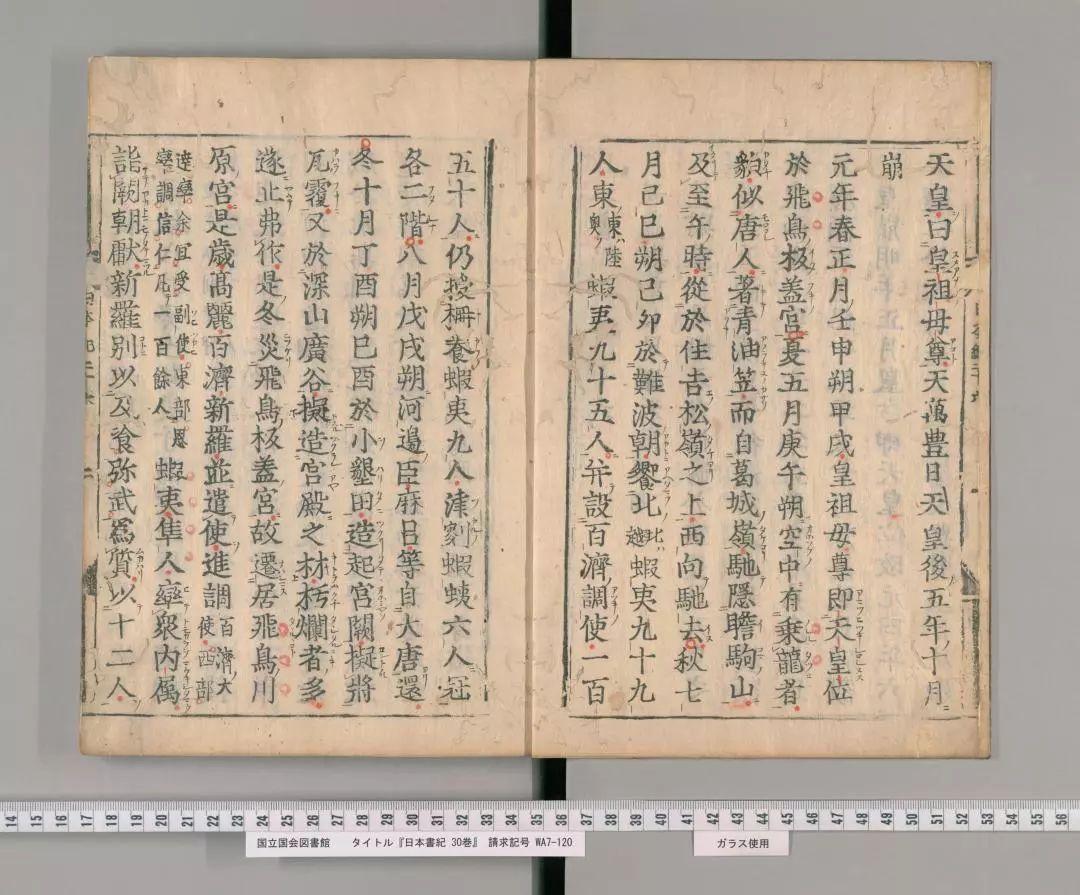 天皇曰皇祖母尊天萬豊日天皇後五年十月
崩
元年春正月壬申朔甲戌皇祖母尊即天皇位
於飛鳥板盖宮夏五月庚午朔空中有乗龍者
貌似唐人著青油笠而自葛城嶺馳隠膽駒山
及至午時從於住吉松嶺之上西向馳去秋七
月己巳朔己卯於難波朝饗北北越蝦夷九十九
人東東陸奥蝦夷九十五人并設百濟調使一百
五十人仍授柵養蝦夷九人津刻蝦蛦六人冠
各二階八月戊戌朔河邉臣麻呂等自大唐還
冬十月丁酉朔己酉於小墾田造起宮闕擬將
瓦覆又於深山廣谷擬造宮殿之材朽爛者多
遂止弗作是冬災飛鳥板盖宮故遷居飛鳥川
原宮是歳髙麗百濟新羅並遣使進調百濟大使西部
達率余宜受副使東部恩率調信仁凡一百餘人蝦夷隼人率衆内属
詣闕朝獻新羅別以及飡弥武為質以十二人
14 15 16 17 18 19 20 21 22 23 24 25 26 27 28 29 30 31 32 33 34 35 36 37 38 39 40 41 42 43 44 45 46 47 48 49 50 51 52 53 54 55 56
国立国会図書館 タイトル『日本書紀 30巻』 請求記号 WA7-120
ガラス使用